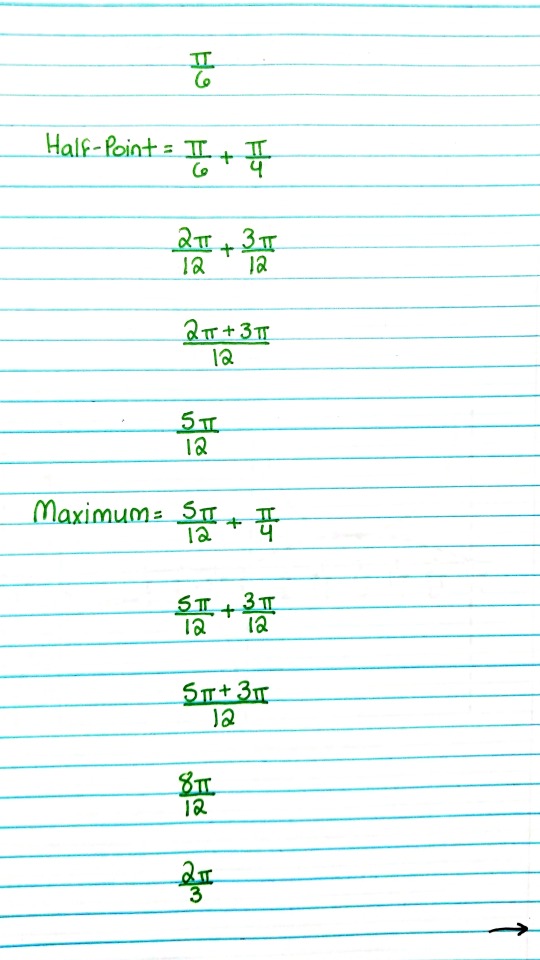 π/6
Half-Point = π/6 + π/4
2π/12 + 3π/12
2π+3π/12
5π/12
Maximum = 5π/12 + π/4
5π/12 + 3π/12
5π+3π/12
8π/12
2π/3
→